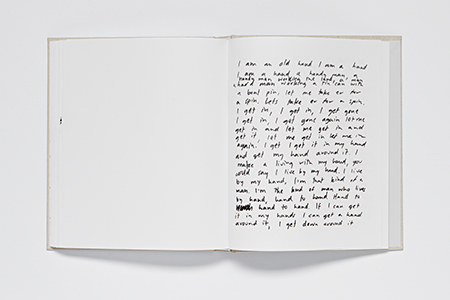 I am an old hand I am a hand
I am a hand a handy man, a
handy man working the land, a man
a hard man working a tin can with
a bent pin, let me take er for
a spin. Lets take er for a spin.
I get in, I get in, I get gone
I get in, I get gone again let me
get in and let me get in and
get it, let me get in let me in
again. I get I got it in my hand
and get my hand around it. I
make a living with my hand, you
could say I live by my hand. I live
by my hand, I'm that kind of a
man. I'm the kind of man who lives
by hand, hand to hand Hand to
hand to hand. If I can get
it in my hands I can get a hand
around it, I get down around it